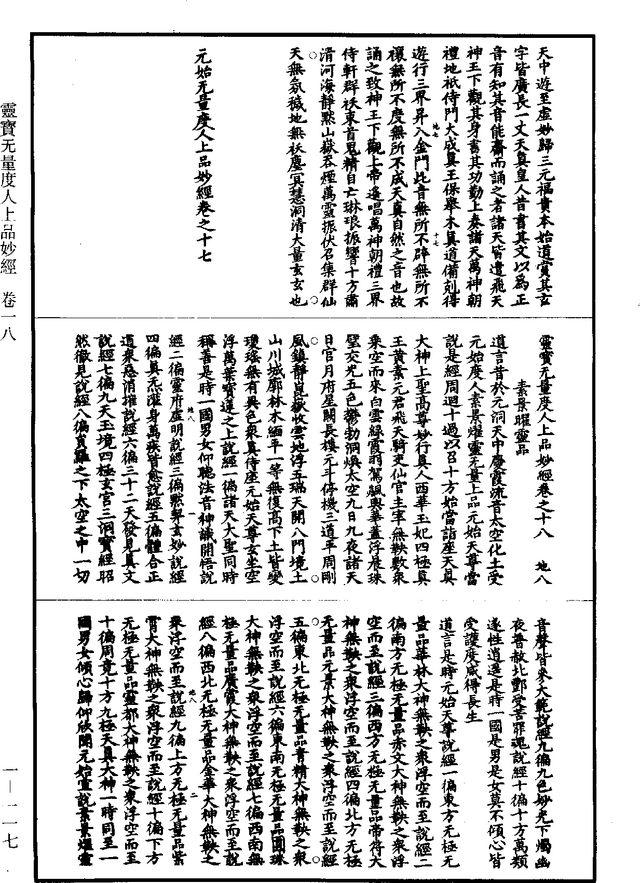 靈寶无量度人上品妙經 卷一八
天中遊至虛妙歸三元福貴本始道實其玄
字皆廣長一丈天真皇人昔書其文以為正
音有知其音能齋而誦之者諸天皆遣飛天
神王下觀其身書其功勤上奏諸天萬神朝
禮地祇侍門大成真王保舉木真道備剋得
遊行三界昇入金門此音無所不辟無所不
地七 十七
禳無所不度無所不成天真自然之音也故
誦之致神王下觀上帝遙唱萬神朝禮三界
侍軒群袄束首鬼精自亡琳琅振響十方肅
清河海靜默山嶽吞煙萬靈振伏召集群仙
天無氛穢地無袄塵冥慧洞清大量玄玄也
元始无量度人上品妙經卷之十七
靈寶无量度人上品妙經卷之十八 地八
素景曜靈品
道言昔於元洞天中慶霞流音太空化土受
元始度人素景曜靈无量上品元始天尊當
說是經周迴十過以召十方始當詣座天真
大神上聖高尊妙行真人西華玉妃四極真
王黃素元君飛天騎吏仙官主宰無鞅數衆
乘空而來白雲綠霞翦駕飆輿華蓋浮晨珠
璧交光五色鬱勃洞煥太空九日九夜諸天
日宮月府星闕長樓元斗停機三道平周剛
風鎮靜良嶽收雲地浮五瑞天開八門境土
山川城郭林木緬平一等無復高下土皆變
瓊瑤無有異色衆真侍座元始天尊玄坐空
浮萬葉寶蓮之上說經一徧諸天大聖同時
稱善是時一國男女仰聽法音神識開悟說
地八 一
經二徧靈府虛明說經三徧默契玄妙說經
四徧真炁灌身萬疾皆愈說經五徧體合正
道衆惡消摧說經六徧三十二天發見真文
說經七徧九天玉境四極玄宮三洞寶經昭
然徹見說經八徧真羅之下太空之中一切
音聲皆來大範說經九徧九色妙光下燭幽
夜普赦北酆受苦罪魂說經十徧十方萬類
遂性逍遙是時一國是男是女莫不傾心皆
受護度咸得長生
道言是時元始天尊說經一徧東方无極无
量品華林大神無鞅之衆浮空而至說經二
徧南方无極无量品赤文大神無鞅之衆浮
空而至說經三徧西方无極无量品帝符大
神無鞅之衆浮空而至說經四徧北方无極
无量品元景大神無鞅之衆浮空而至說經
五徧東北无極无量品青精大神無鞅之衆
浮空而至說經六徧東南无極无量品圓珠
大神無鞅之衆浮空而至說經七徧西南無
極无量品廣霄大神無鞅之衆浮空而至說
經八徧西北无極无量品金華大神無鞅之
地八 二
衆浮空而至說經九徧上方无極无量品紫
霄大神無鞅之衆浮空而至說經十徧下方
无極无量品靈都大神無鞅之衆浮空而至
十徧周竟十方九極天真大神一時同至一
國男女傾心歸仰欣聞元始當說素景曜靈
一—一一七